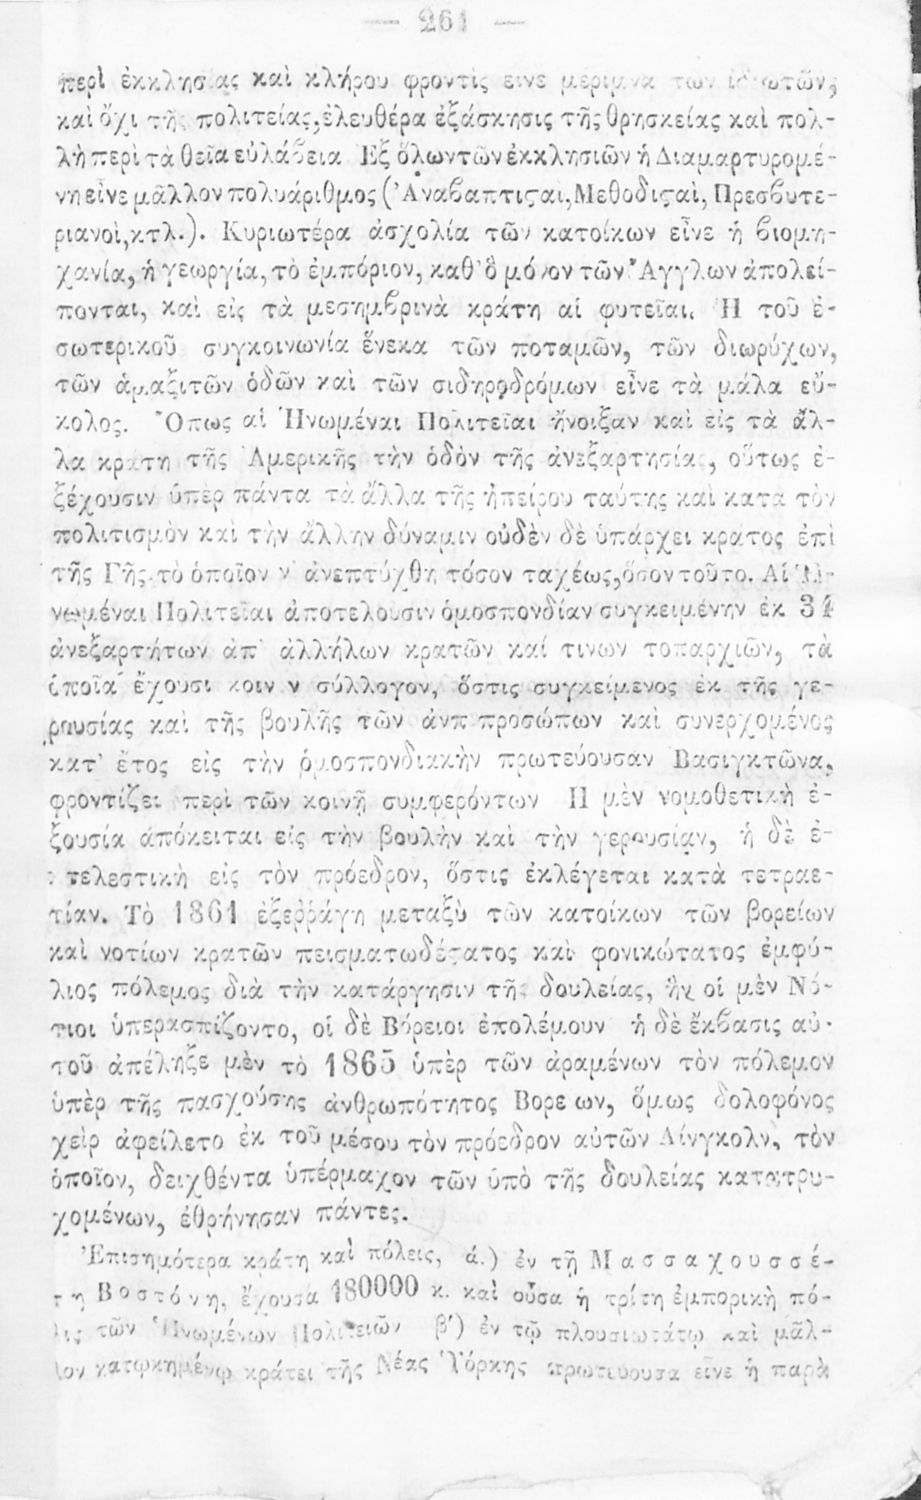 — 261 —
περὶ ἐκκλησίας καὶ κλήρου φροντὶς εἶνε μέριμνα τῶν ἰδιωτῶν,
καὶ ὄχι τῆς πολιτείας, ἐλευθέρα ἐξάσκησις τῆς θρησκείας καὶ πολ-
λὴ περὶ τὰ θεῖα εὐλάβεια Ἐξ ὅλων τῶν ἐκκλησιῶν ἡ Διαμαρτυρομέ-
νη εἶνε μᾶλλον πολυάριθμος (Ἀναβαπτισταὶ, Μεθοδισταὶ, Πρεσβυτε-
ριανοὶ, κτλ.). Κυριωτέρα ἀσχολία τῶν κατοίκων εἶνε ἡ βιομη-
χανία, ἡ γεωργία, τὸ ἐμπόριον, καθ' ὃ μόνον τῶν Ἄγγλων ἀπολεί-
πονται, καὶ εἰς τὰ μεσημβρινὰ κράτη αἱ φυτεῖαι. Ἡ τοῦ ἐ-
σωτερικοῦ συγκοινωνία ἕνεκα τῶν ποταμῶν, τῶν διωρύχων,
τῶν ἁμαξιτῶν ὁδῶν καὶ τῶν σιδηροδρόμων εἶνε τὰ μάλα εὔ-
κολος. Ὅπως αἱ Ἡνωμέναι Πολιτεῖαι ἤνοιξαν καὶ εἰς τὰ ἄλ-
λα κράτη τῆς Ἀμερικῆς τὴν ὁδὸν τῆς ἀνεξαρτησίας, οὕτως ἐ-
ξέχουσιν ὑπὲρ πάντα τὰ ἄλλα τῆς ἠπείρου ταύτης καὶ κατὰ τὸν
πολιτισμὸν καὶ τὴν ἄλλην δύναμιν οὐδὲν δὲ ὑπάρχει κράτος ἐπὶ
τῆς Γῆς τὸ ὁποῖον ν' ἀνεπτύχθη τόσον ταχέως, ὅσον τοῦτο. Αἱ Ἡ-
νωμέναι Πολιτεῖαι ἀποτελοῦσιν ὁμοσπονδίαν συγκειμένην ἐκ 34
ἀνεξαρτήτων ἀπ' ἀλλήλων κρατῶν καί τινων τοπαρχιῶν, τὰ
ὁποῖα ἔχουσι κοινὸν σύλλογον, ὅστις συγκείμενος ἐκ τῆς γε-
ρουσίας καὶ τῆς βουλῆς τῶν ἀντιπροσώπων καὶ συνερχομένος
κατ' ἔτος εἰς τὴν ὁμοσπονδιακὴν πρωτεύουσαν Βασιγκτῶνα,
φροντίζει περὶ τῶν κοινῇ συμφερόντων Ἡ μὲν νομοθετικὴ ἐ-
ξουσία ἀπόκειται εἰς τὴν βουλὴν καὶ τὴν γερουσίαν, ἡ δὲ ἐ-
κτελεστικὴ εἰς τὸν πρόεδρον, ὅστις ἐκλέγεται κατὰ τετραε-
τίαν. Τὸ 1861 ἐξερράγη μεταξὺ τῶν κατοίκων τῶν βορείων
καὶ νοτίων κρατῶν πεισματωδέστατος καὶ φονικώτατος ἐμφύ-
λιος πόλεμος διὰ τὴν κατάργησιν τῆς δουλείας, ἣν οἱ μὲν Νό-
τιοι ὑπερασπίζοντο, οἱ δὲ Βόρειοι ἐπολέμουν ἡ δὲ ἔκβασις αὐ-
τοῦ ἀπέληξε μὲν τὸ 1865 ὑπὲρ τῶν ἀραμένων τὸν πόλεμον
ὑπὲρ τῆς πασχούσης ἀνθρωπότητος Βορείων, ὅμως δολοφόνος
χεὶρ ἀφείλετο ἐκ τοῦ μέσου τὸν πρόεδρον αὐτῶν Λίνγκολν, τὸν
ὁποῖον, δειχθέντα ὑπέρμαχον τῶν ὑπὸ τῆς δουλείας κατατρυ-
χομένων, ἐθρήνησαν πάντες.
Ἐπισημότερα κράτη καὶ πόλεις, ά.) ἐν τῇ Μασσαχουσσέ-
τη Βοστόνη, ἔχουσα 180000 κ. καὶ οὖσα ἡ τρίτη ἐμπορικὴ πό-
λις τῶν Ἡνωμένων Πολιτειῶν β') ἐν τῷ πλουσιωτάτῳ καὶ μᾶλ-
λον κατῳκημένῳ κράτει τῆς Νέας Ὑόρκης πρωτεύουσα εἶνε ἡ παρὰ